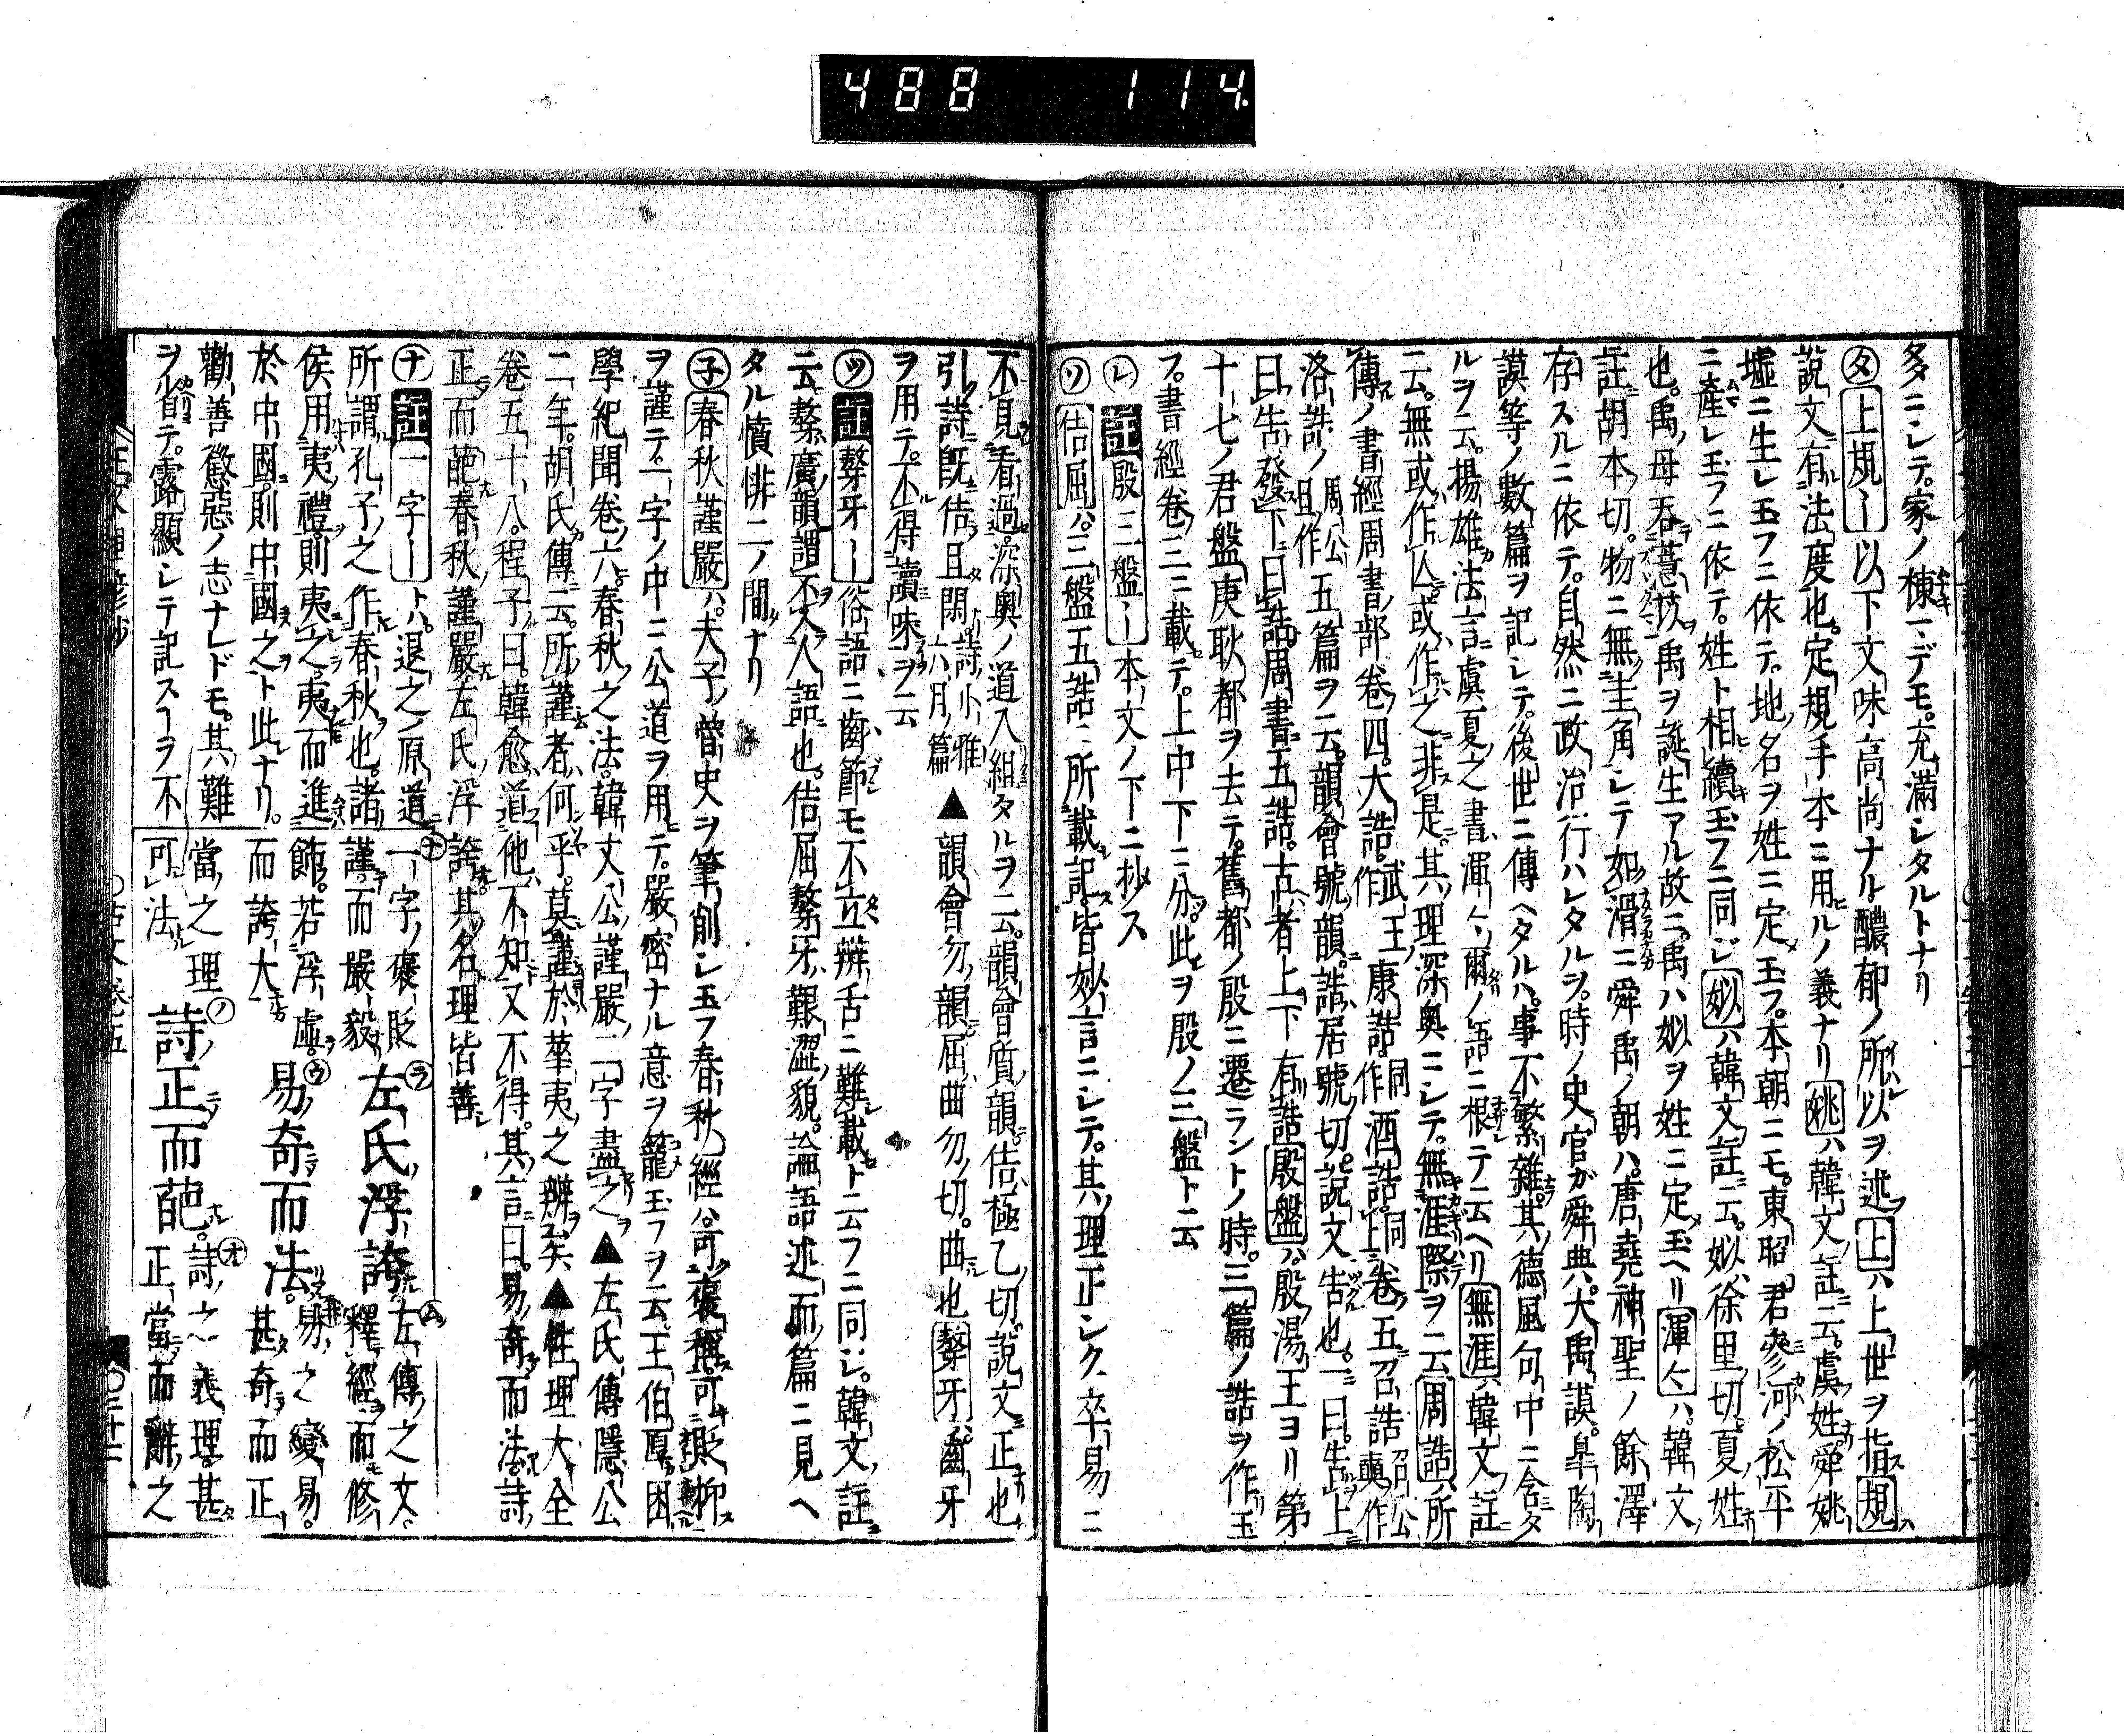 488 114.
多ニシテ。家ノ棟マデモ。充滿シタルトナリ
㋟上規ー以下文味高尚ナル醲郁ノ所以ヲ述上ハ上世ヲ指ス規ハ
說文有法度也。定規手本ニ用ルノ義ナリ姚ハ韓文註云。虞姓。舜姚
墟ニ生レ玉フニ依テ。地名ヲ姓ニ定玉フ。本朝ニモ。東昭君參河ノ松平
ニ產レ玉フニ依テ。姓ト相續玉フニ同ジ姒ハ韓文註ニ云。姒徐里切。夏姓
也。禹母吞薏苡禹ヲ誕生アル故ニ。禹ハ姒ヲ姓ニ定玉ヘリ渾〻ハ。韓文
註胡本切。物ニ無圭角シテ如滑ニ舜禹ノ朝ハ。唐堯神聖ノ餘澤
存スルニ依テ。自然ニ政治行ハレタルヲ。時ノ史官ガ舜典。大禹謨。皐陶
謨等ノ數篇ヲ記シテ。後世ニ傳ヘタルハ。事不繁雜。其德風句中ニ含タ
ルヲ云。揚雄法言虞夏之書渾〻爾ノ語ニ根テ云ヘリ無涯ハ韓文註
云。無或作亾或作之非是。其理深奧ニシテ。無涯際ヲ云周誥ハ所
傳ノ書經周書部卷四。大誥作武王康誥同作酒誥同上卷五召誥召公奭作
洛誥ノ周公旦作五篇ヲ云。韻會號韻。誥居號切。說文吿也。一曰。吿上
曰吿。發下曰誥。周書五誥。古者上下有誥殷盤ハ。殷湯王ヨリ第
十七ノ君盤庚耿都ヲ去テ。舊都ノ殷ニ遷ラントノ時。三篇ノ誥ヲ作玉
フ。書經卷三ニ載テ。上中下ニ分。此ヲ殷ノ三盤ト云
㋹註殷三盤ー本文ノ下ニ抄ス
㋞佶屈ハ。三盤五誥ニ所載記。皆妙言ニシテ。其理正シク卒易ニ
不見看過。深奧ノ道入組タルヲ云。韻會質韻。佶極乙切。說文正也
引詩旣佶且閑詩小雅六月篇▲韻會勿韻屈曲勿切。曲也聱牙ハ。齒牙
ヲ用テ。不得讀味ヲ云
㋡註聱牙ー俗語ニ齒節モ不立辨舌ニ難載ト云フニ同シ。韓文註
云聱廣韻謂不入人語也。佶屈聱牙艱澀貌。論語述而篇ニ見ヘ
タル憤悱二ノ間ナリ
㋧春秋謹嚴ハ。夫子魯史ヲ筆削シ玉フ春秋經ハ。可褒稱。可貶抑
ヲ謹テ。一字ノ中ニ公道ヲ用テ。嚴密ナル意ヲ籠玉フヲ云。王伯厚困
學紀聞卷六。春秋之法。韓文公謹嚴二字盡之▲左氏傳隱公
二年。胡氏傳云。所謹者何乎。莫謹於華夷之辨矣▲性理大全
卷五十八。程子曰。韓愈道他不知又不得。其言曰。易奇而法。詩
正而葩。春秋謹嚴。左氏浮誇。其名理皆善
㋤註一字ートハ。退之ノ原道
所謂孔子之作春秋也。諸
侯用夷禮則夷之。夷而進
於中國。則中國之ト此ナリ。
勸善懲惡ノ志ナレドモ。其難
ヲ省テ。露顯シテ記スヿヲ不
㋤一字ノ褒貶
謹而嚴毅㋶左氏浮誇㋰左傳之文
飾。若浮虛釋經而修
而誇大㋒易奇而法。易之變易。
甚奇而正
當之理
可法㋨詩正而葩。㋔詩之義理甚
正當而辭之